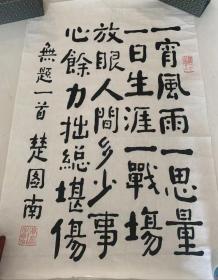 一宵風雨一思量
一日生涯一戰場
放眼人間多少事
心餘力拙總堪傷
無題一首 楚图南